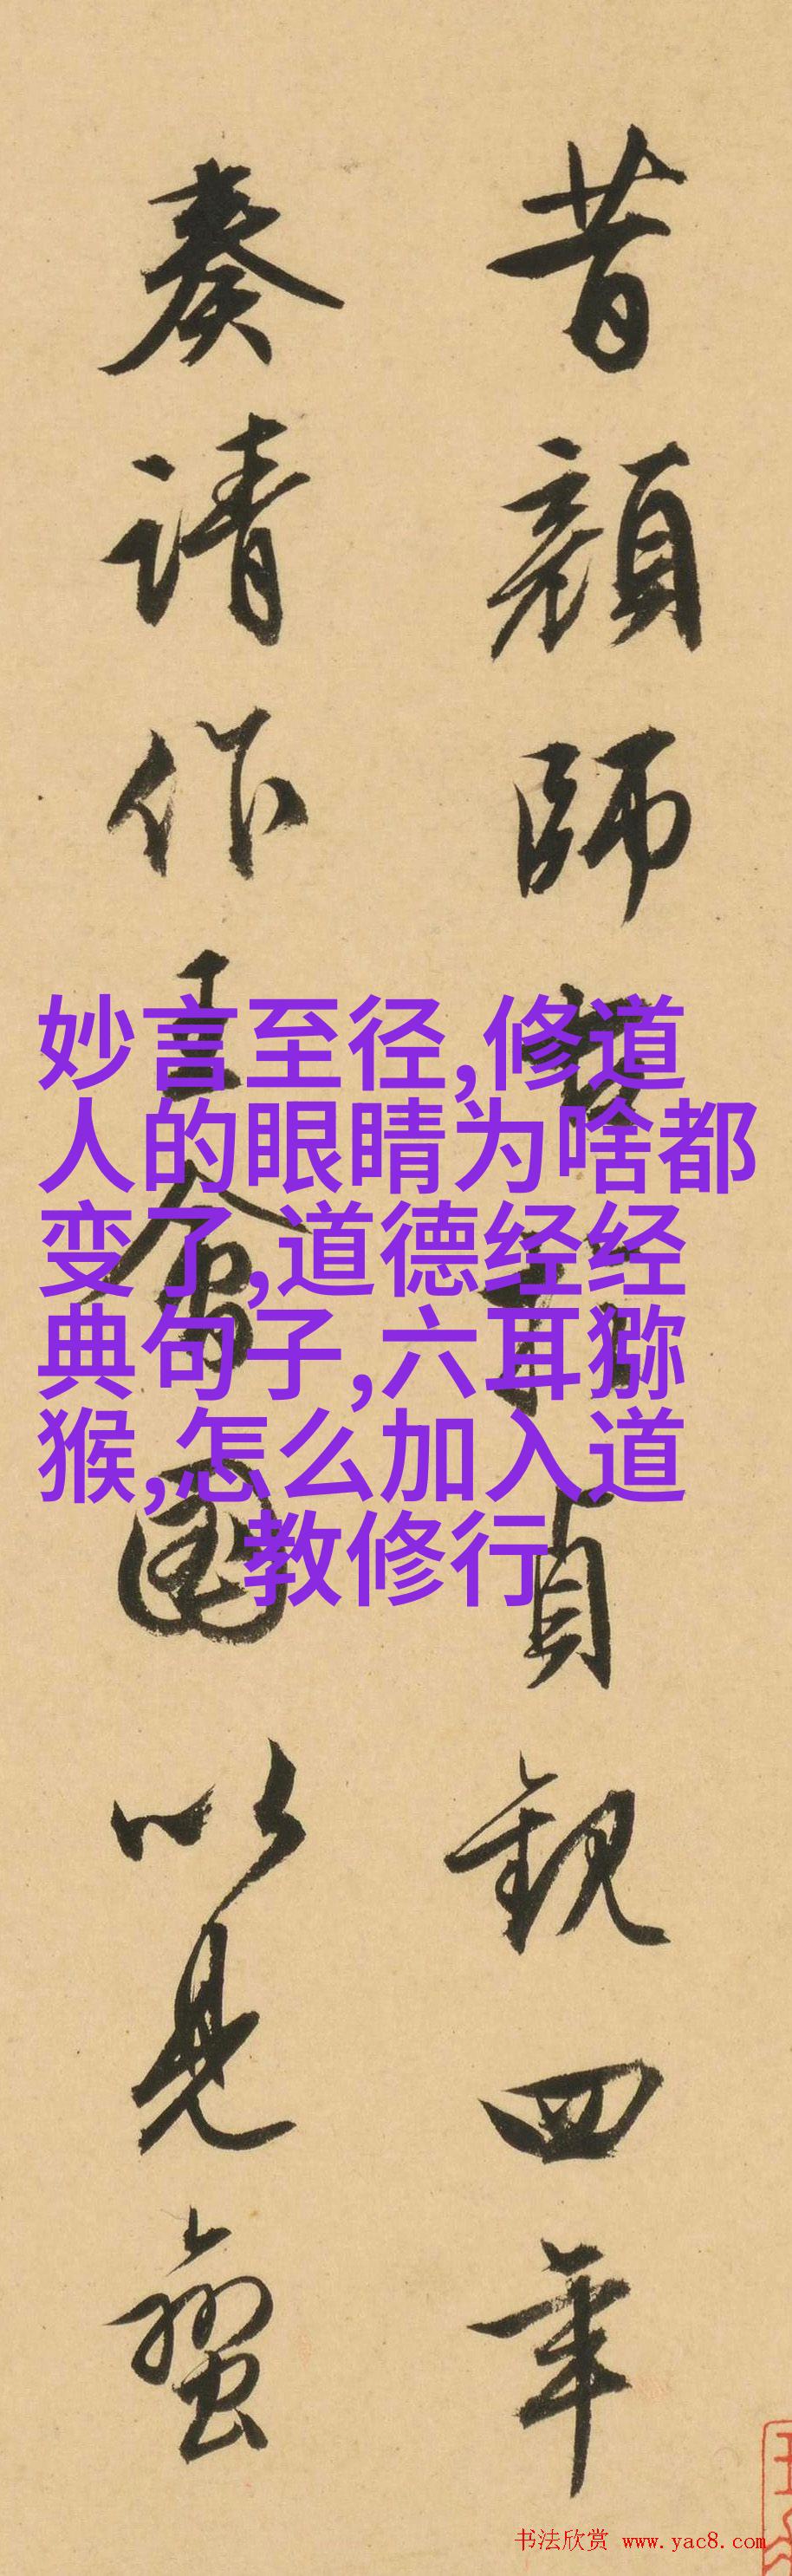 昔顏師貞觀四年
奏請作王會圖以見蠻
妙言至径,修道
人的眼睛为啥都
变了,道德经经
典句子,六耳猕
猴,怎么加入道
教修行
书法欣赏 www.yac8.com